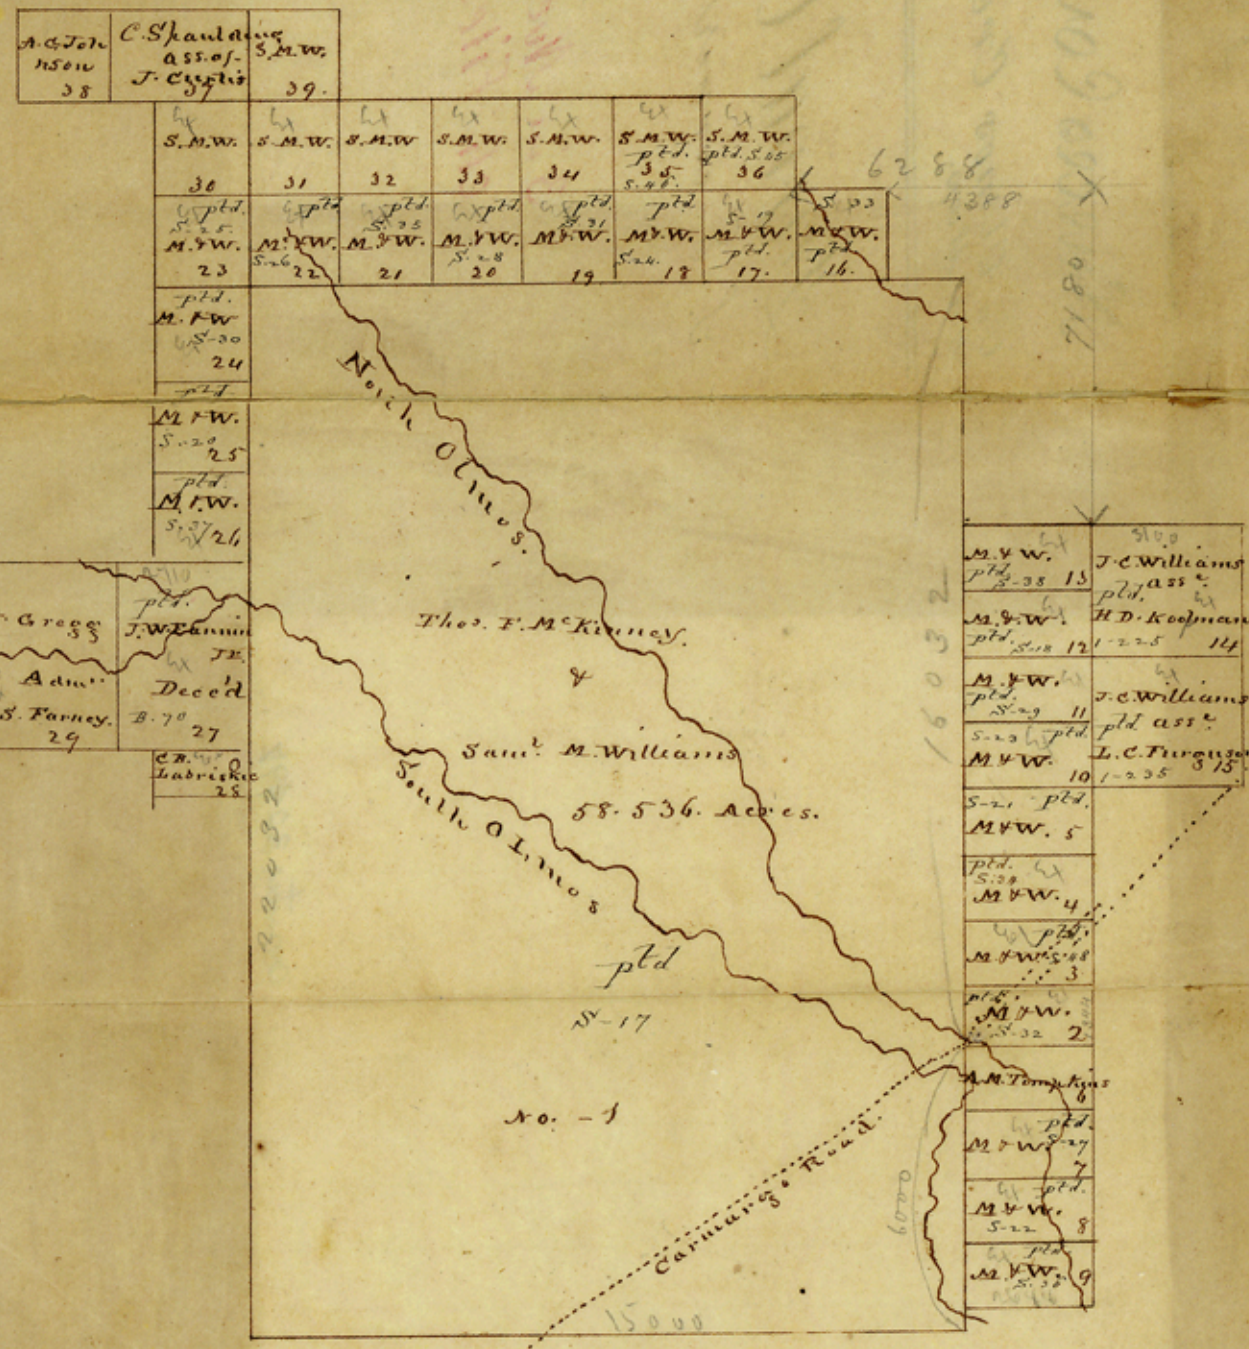 A.C. Joh
nson
38
C. Spaulding
ass. of
J. Curtis
37
S.M.W.
39.
S.M.W.
30
S.M.W.
31
S.M.W
32
S.M.W.
33
S.M.W.
34
S.M.W.
ptd.
35
S-40.
S.M.W.
36
6288
4388
7180
ptd.
S-25
M.&W.
23
ptd
M.&W.
S-26
22
ptd.
M.&W.
21
ptd
M.&W.
S-28
20
ptd.
S-31
M&W.
19
ptd
M&W.
S-24.
18
S-19
M&W.
ptd.
17.
S-33
M&W.
ptd
16.
ptd.
M.&W
S-30
24
ptd
M&W.
S-20
25
ptd.
M.&W.
S-37
26
North Olmos.
Gregg
Adm.
S. Farney.
29
ptd.
J.W. Fannin
Jr.
Dece'd
B.70
27
C.B.
Labriskie
28
22092
Thos. F. McKinney.
&
Saml. M. Williams
58.536. Acres.
South Olmos
ptd
S-17
No. - 1
Carmargo Road.
15000
6000
16032
M.&W.
ptd
S-38
13
J.C. Williams
asse.
ptd.
H.D. Koopman
1-225
14
M.&W.
ptd.
S-18
12
M.&W.
ptd.
S-29
11
J.C. Williams
ptd asse
L.C. Furguson
1-235
15
S-23 ptd.
M&W.
10
S-21 ptd.
M&W. 5
ptd.
S-34
M&W. 4
ptd.
M&W
3
ptd.
M&W.
S-32
2
A.M. Tompkins
6
ptd.
M&W S-27
7
ptd.
M&W.
S-22
8
ptd
M&W. 9